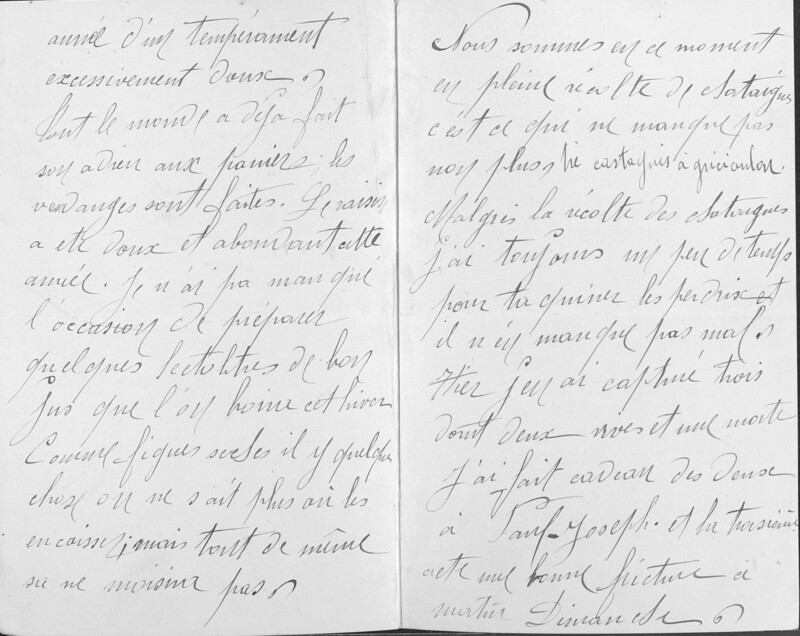 année d'un tempérament
excessivement doux.
Tout le monde a déjà fait
son adieu aux paniers; les
vendanges sont faites. Le raisin
a eté doux et abondant cette
année. Je n'ai pa manqué
l'occasion de préparer
quelques hectolitres de bon
Jus que l'on boira cet hiver
Comme figues seches il y quelque
chose on ne sait plus où les
encaisser; mais tout de même
sa ne moisira pas.
Nous sommes en ce moment
en pleine récolte de chataignes
c'est ce qui ne manque pas
non plus, castagnes à
Malgrés la récolte des chataignes
j'ai toujours un peu de temps
pour taquiner les perdrix et
il n'en manque pas mal.
Hier j'en ai capturé trois
dont deux vives et une morte
J'ai fait cadeau des deux
à Paul-Joseph. et la troisième
a été une bonne friture à
Dimanche.